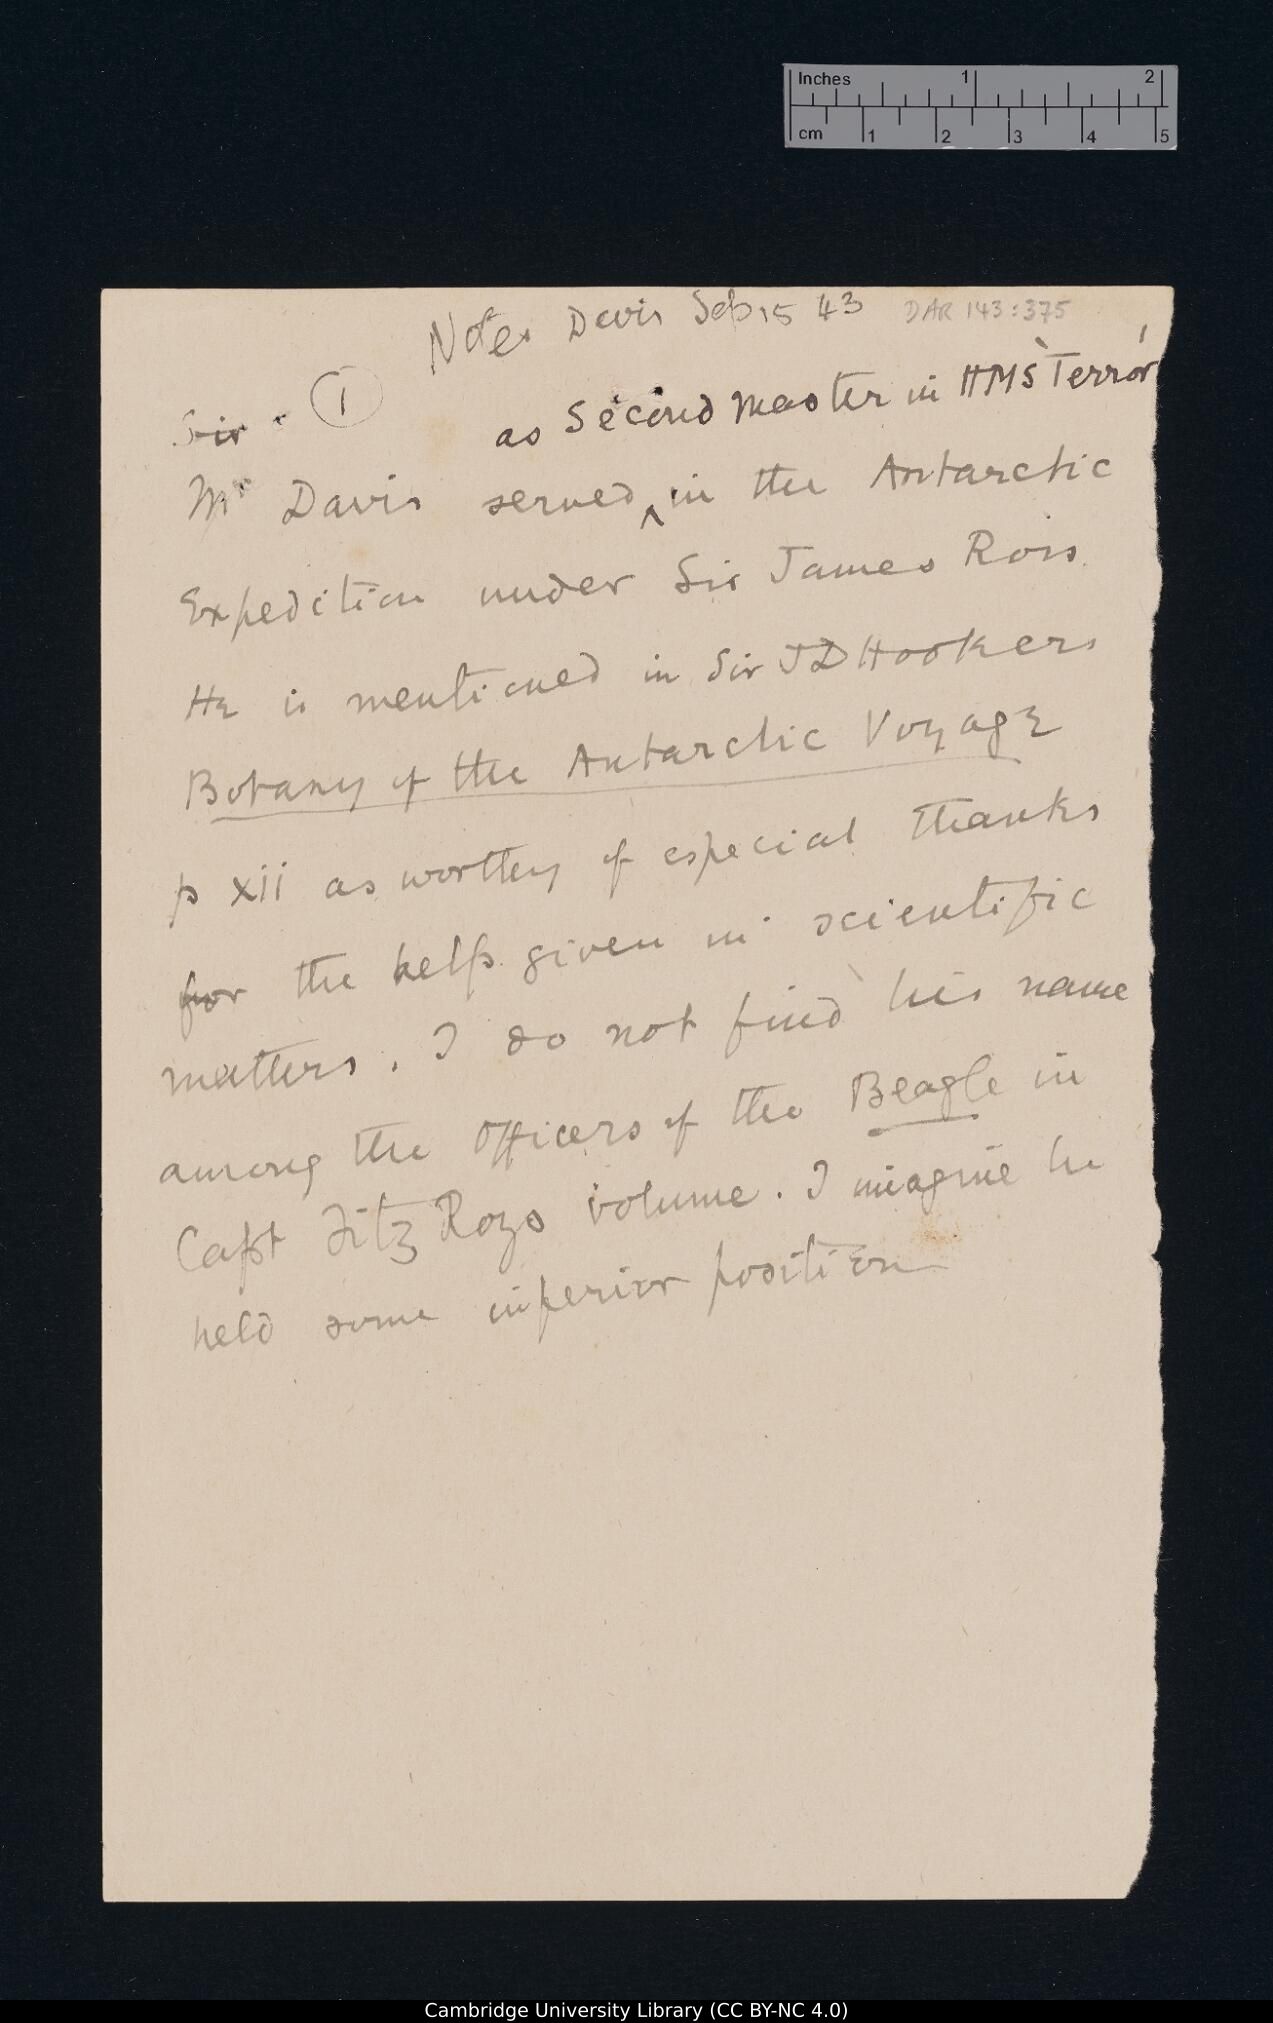 Inches 1 2
cm 1 2 3 4 5
Notes Davis Sep 15 43 DAR 143:375
Sir 1
as Second Master in HMS 'Terror'
Mr Davis served ^ in the Antarctic
Expedition under Sir James Ross.
He is mentioned in Sir J D Hookers
Botany of the Antarctic Voyage
p xii as worthy of especial thanks
for the help given in scientific
matters. I do not find his name
among the officers of the Beagle in
Capt Fitz Roys volume. I imagine he
held some inferior position
Cambridge University Library (CC BY-NC 4.0)